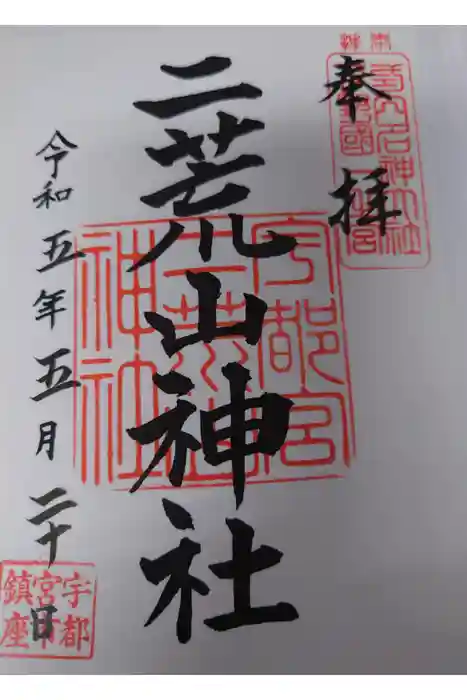 奉拝
二荒山神社
宇都宮
二荒山
神社
令和五年五月二十日
宇都
宮市
鎮座